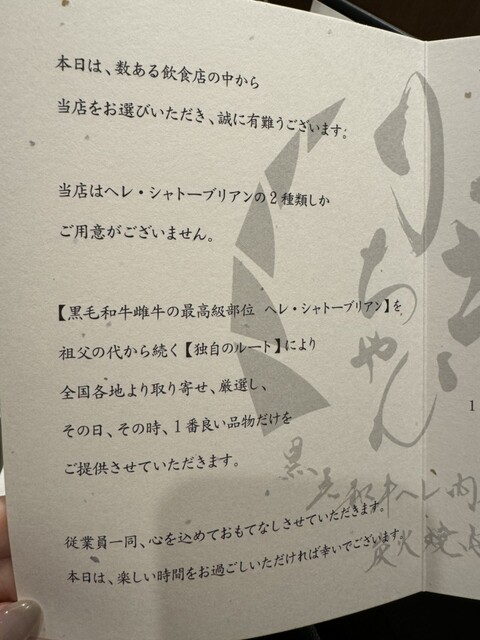 本日は、数ある飲食店の中から
当店をお選びいただき、誠に有難うございます。
当店はヘレ・シャトーブリアンの2種類しか
ご用意がございません。
【黒毛和牛雌牛の最高級部位 ヘレ・シャトーブリアン】を
祖父の代から続く【独自のルート】により
全国各地より取り寄せ、厳選し、
その日、その時、1番良い品物だけを
ご提供させていただきます。
従業員一同、心を込めておもてなしさせていただきます。
本日は、楽しい時間をお過ごしいただければ幸いでございます。
りちゃん
黒毛和牛ヘレ肉
炭火焼
1